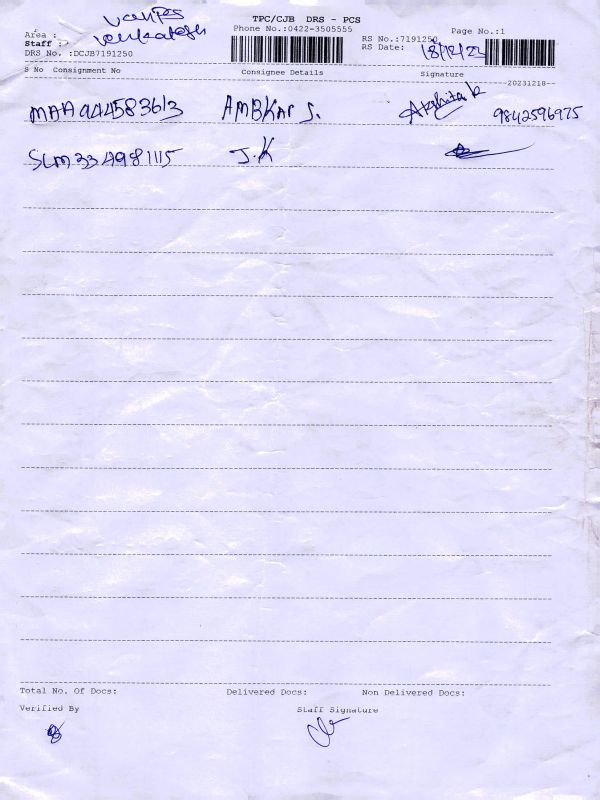 TPC/CJB DRS - PCS
Area :
Phone No.:0422-3505555
Page No.:1
Staff : Venkatesh
RS No.:7191250
DRS No. :DCJB7191250
RS Date: 18/12/23
S No Consignment No Consignee Details Signature
--20231218--
MAA944583613 AMBKar S. 9842596975
SLM334981115 J.K
Total No. Of Docs: Delivered Docs: Non Delivered Docs:
Verified By Staff Signature